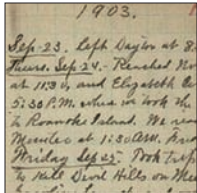 1903.
Sep. 23. Left Dayton at 8:
Thurs. Sep. 24. - Reached No
at 11:3 and Elizabeth Ci
5:30 P.M. when we took the
to Roanoke Island. We rea
Manteo at 1:30 A.M. Frid
Friday Sep 25. Took trip
to Kill Devil Hills on Mea